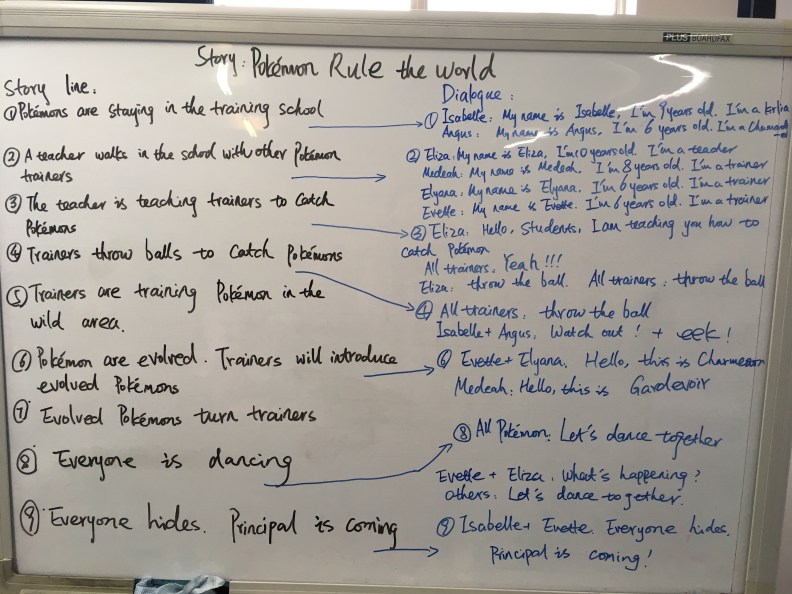 PLUS BOARDFAX
Story: Pokémon Rule the world
Story line:
① Pokémons are staying in the training school
② A teacher walks in the school with other Pokémon
trainers
③ The teacher is teaching trainers to Catch
Pokémons
④ Trainers throw balls to Catch Pokémons
⑤ Trainers are training Pokémon in the
wild area.
⑥ Pokémon are evolved. Trainers will introduce
evolved Pokémons
⑦ Evolved Pokémons turn trainers
⑧ Everyone is dancing
⑨ Everyone hides. Principal is coming
Dialogue:
① Isabelle: My name is Isabelle, I'm 9 years old. I'm a kirlia
Angus: My name is Angus, I'm 6 years old. I'm a
② Eliza: My name is Eliza, I'm 10 years old. I'm a teacher
Medeah: My name is Medeah. I'm 8 years old. I'm a trainer
Elyana: My name is Elyana. I'm 6 years old. I'm a trainer
Evette: My name is Evette. I'm 6 years old. I'm a trainer
③ Eliza: Hello, Students, I am teaching you how to
catch Pokémon
All trainers, Yeah!!!
Eliza: throw the ball. All trainers: throw the ball
④ All trainers: throw the ball
Isabelle + Angus, Watch out! + eek!
⑥ Evette + Elyana. Hello, this is Charmeleon
Medeah: Hello, this is Gardevoir
⑧ All Pokémon: Let's dance together
Evette + Eliza. What's happening?
others: Let's dance together.
⑨ Isabelle + Evette. Everyone hides.
Principal is coming!